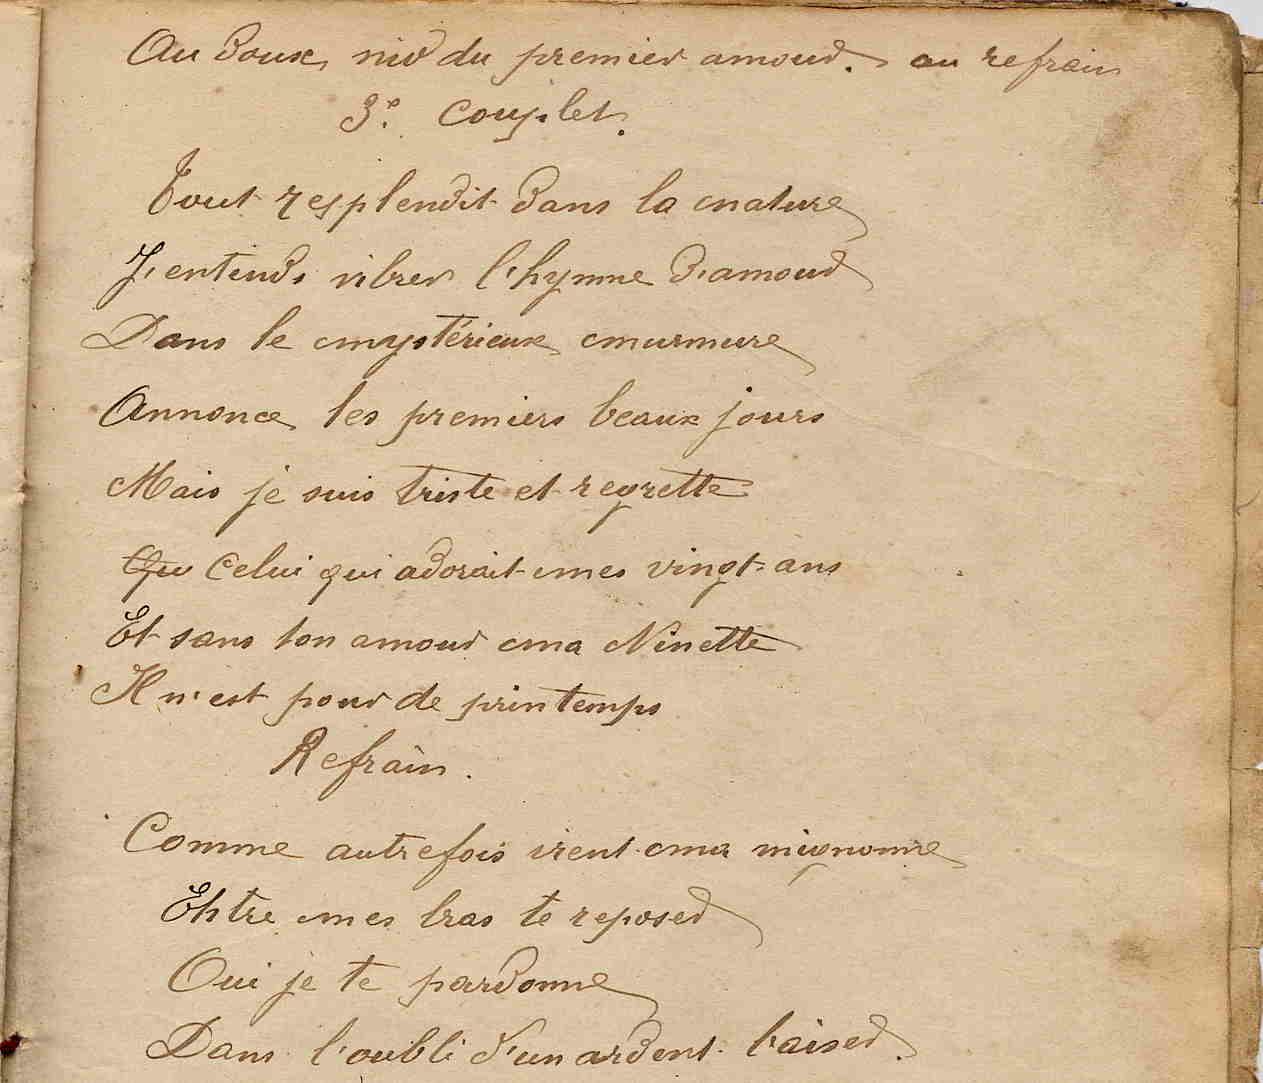 Au doux nid du premier amour. au refrain
3e. Couplet.
Tout resplendit dans la nature
J'entends vibrer l'hymne d'amour
Dans le mystérieux murmure
Annonce les premiers beaux jours
Mais je suis triste et regrette
Qu Celui qui adorait mes vingt ans
Et sans ton amour ma Ninette
Il n'est pour de printemps
Refrain.
Comme autrefois vient ma mignonne
Entre mes bras te reposer
Oui je te pardonne
Dans l'oubli d'un ardent baiser.